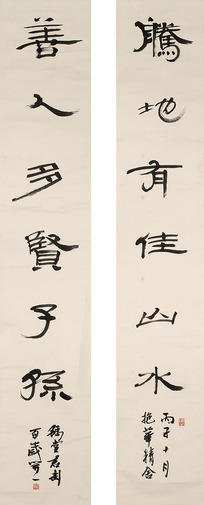 騰地有佳山水
丙子十月
抱華精舍
善人多賢子孫
百歲